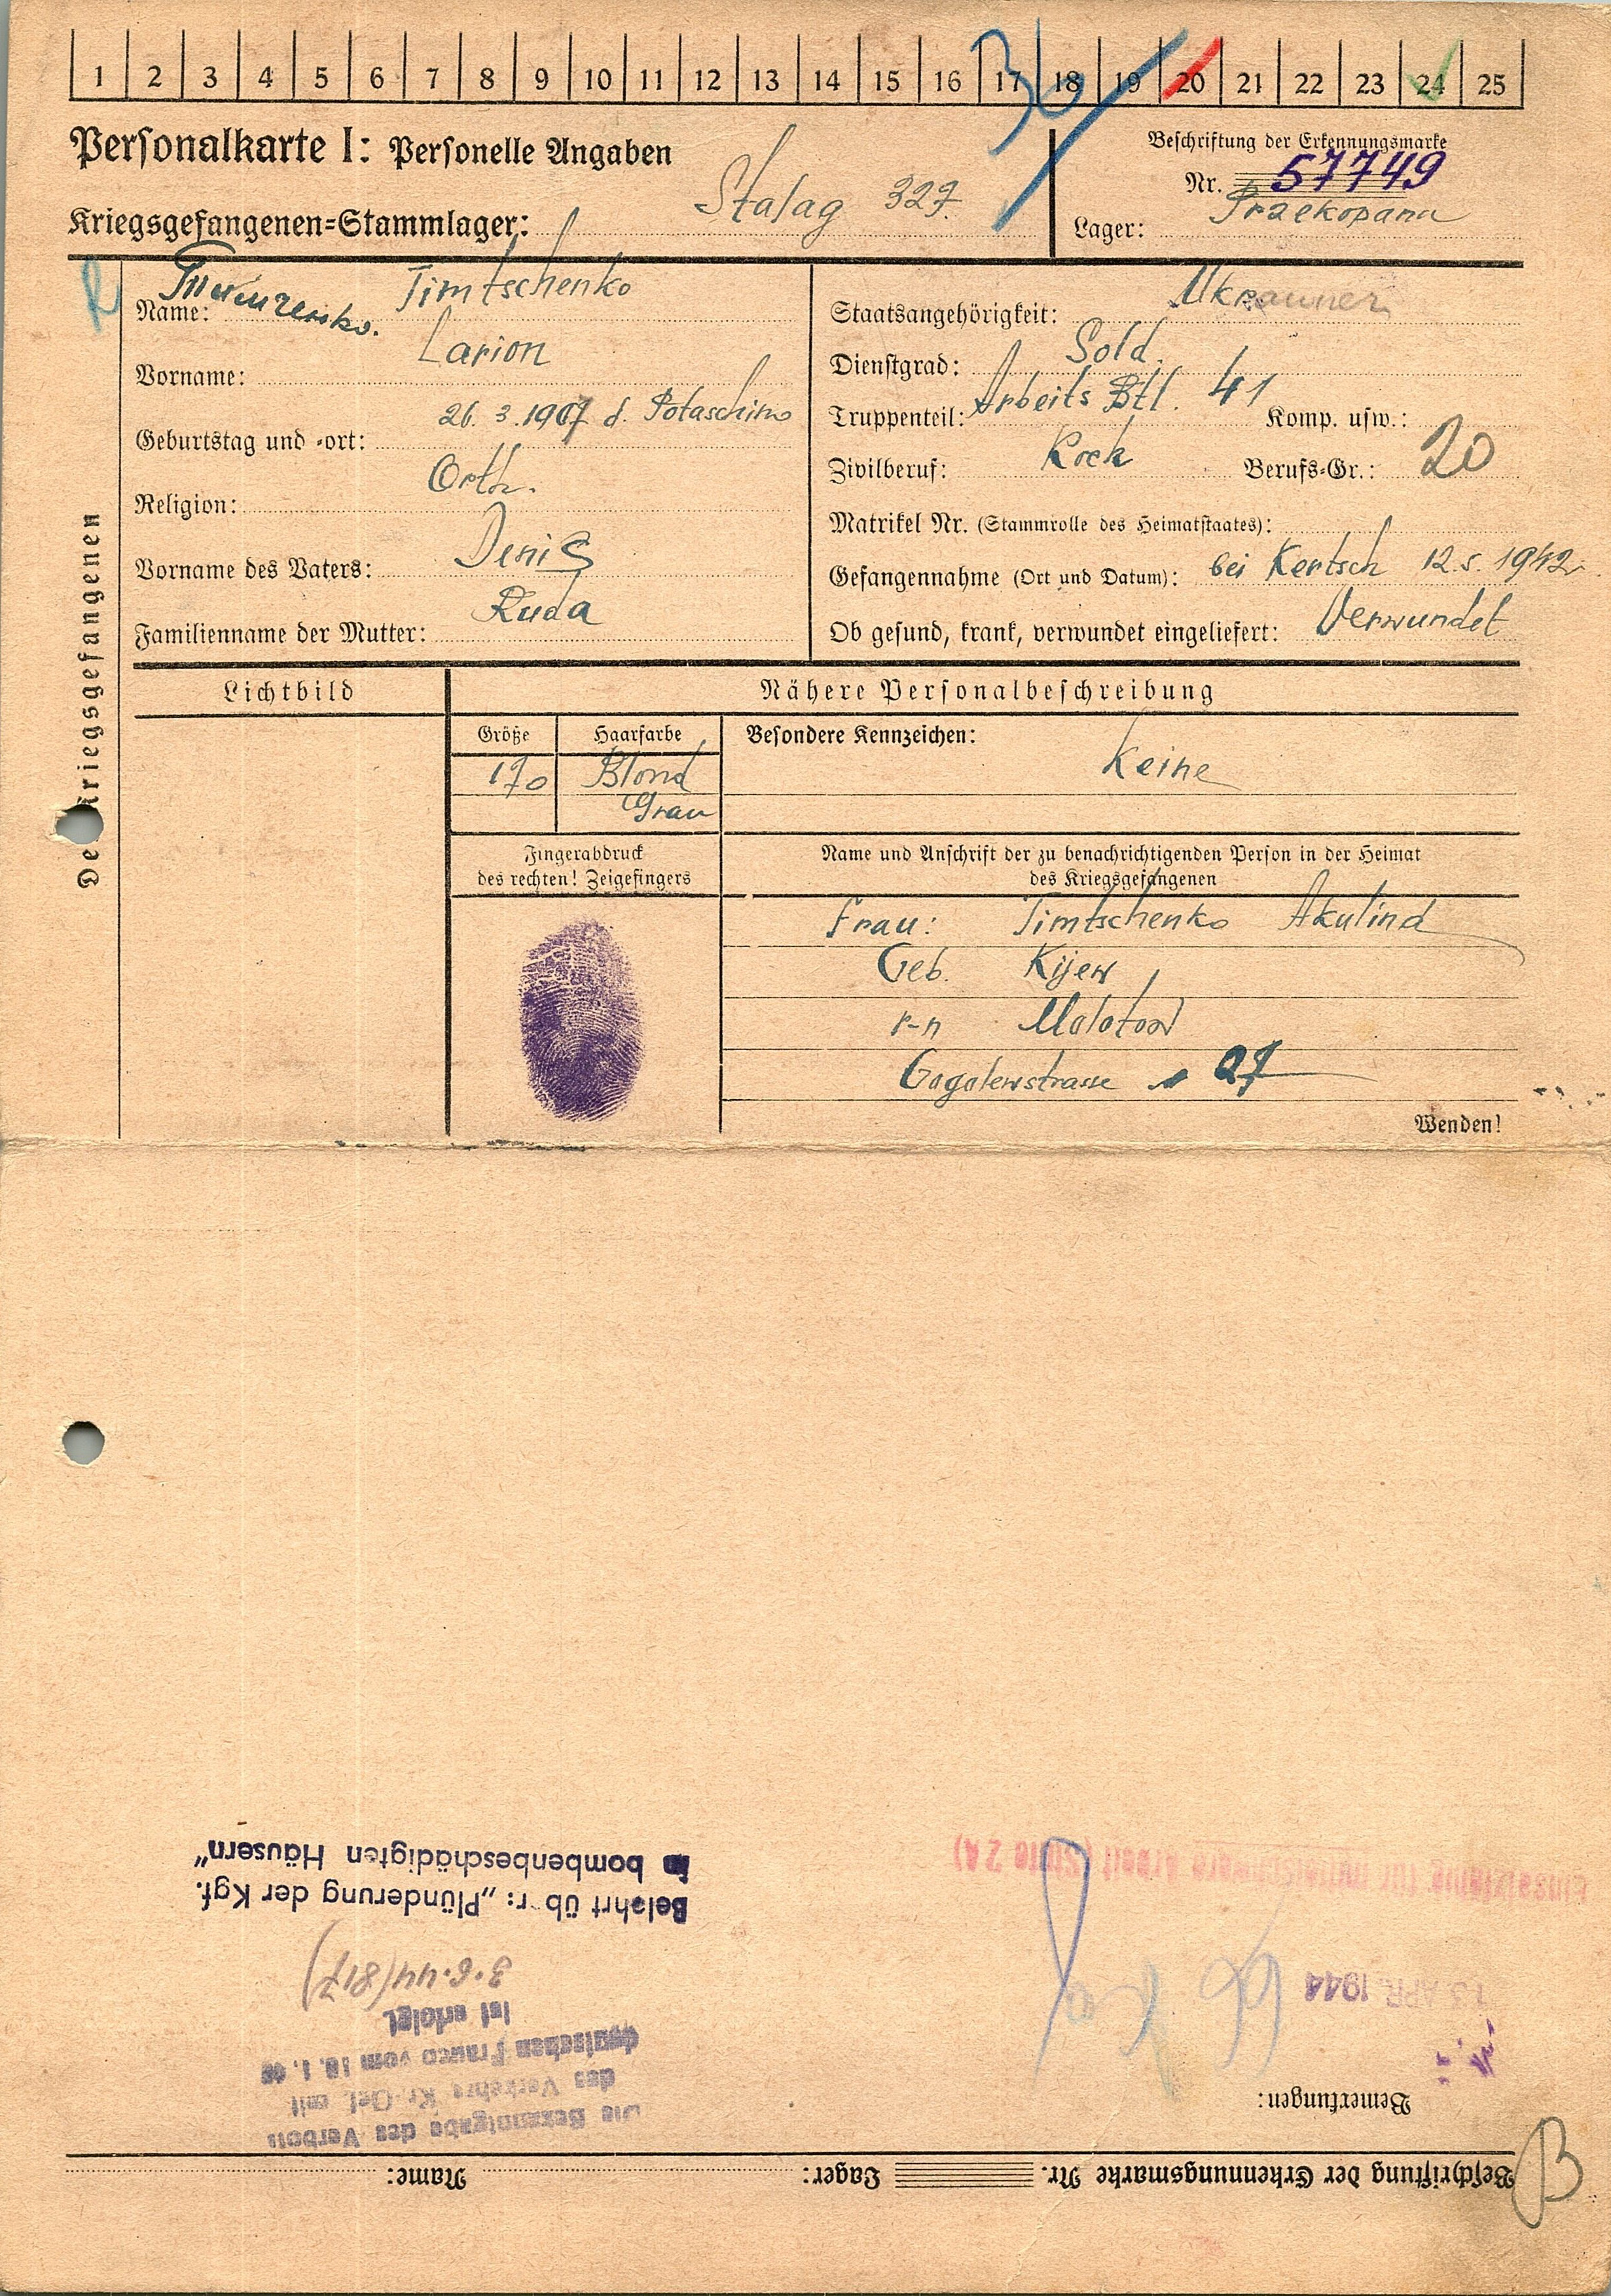 1 2 3 4 5 6 7 8 9 10 11 12 13 14 15 16 17 18 19 20 21 22 23 24 25
36
Personalkarte I: Personelle Angaben
Kriegsgefangenen=Stammlager: Stalag 327.
Beschriftung der Erkennungsmarke
Nr. 57749
Lager: Przekopana
Des Kriegsgefangenen
Name: Тимченко. Timtschenko
Vorname: Larion
Geburtstag und =ort: 26. 3. 1907 d. Potaschino
Religion: Orth.
Vorname des Vaters: Denis
Familienname der Mutter: Ruda
Staatsangehörigkeit: Ukrainer
Dienstgrad: Sold.
Truppenteil: Arbeits Btl. 41 Komp. usw.:
Zivilberuf: Koch Berufs=Gr.: 20
Matrikel Nr. (Stammrolle des Heimatstaates):
Gefangennahme (Ort und Datum): bei Kertsch 12.5.1942
Ob gesund, krank, verwundet eingeliefert: Verwundet
Lichtbild
Nähere Personalbeschreibung
Größe Haarfarbe Besondere Kennzeichen:
170 Blond Keine
Grau
Fingerabdruck
des rechten! Zeigefingers
Name und Anschrift der zu benachrichtigenden Person in der Heimat
des Kriegsgefangenen
Frau: Timtschenko Akulina
Geb. Kijew
r-n Molotow
Gogolewstrasse 27
Wenden!
Beschriftung der Erkennungsmarke Nr. Lager: Name:
B
Bemerkungen:
13. APR. 1944
Einsatzfähig für mittelschwere Arbeit (Stufe 2a)
Die Bekanntgabe des Verbots
des Verkehrs Kr.-Gef. mit
deutschen Frauen vom 10. 1. 40
ist erfolgt
3.6.44 (817)
Belehrt über: „Plünderung der Kgf.
in bombenbeschädigten Häusern“